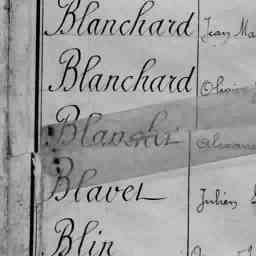 Blanchard Jean Ma
Blanchard Olivier
Blanchi
Blavet Julien
Blin